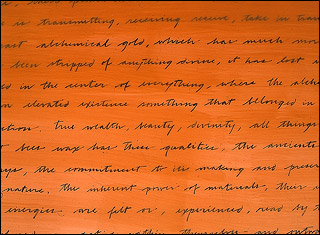 is transmitting, receiving recieve, take in tran
act alchemical gold, which has much mor
been stripped of anything divine, it has lost i
ed in the center of everything, where the alche
on elevated existence something that belonged in
ction. true wealth, beauty, divinity, all things
t bees wax has these qualities, the ancients
ys, the commitment to its making and preser
nature. The inherent power of materials, their i
energies are felt or, experienced, read by t
themselves and